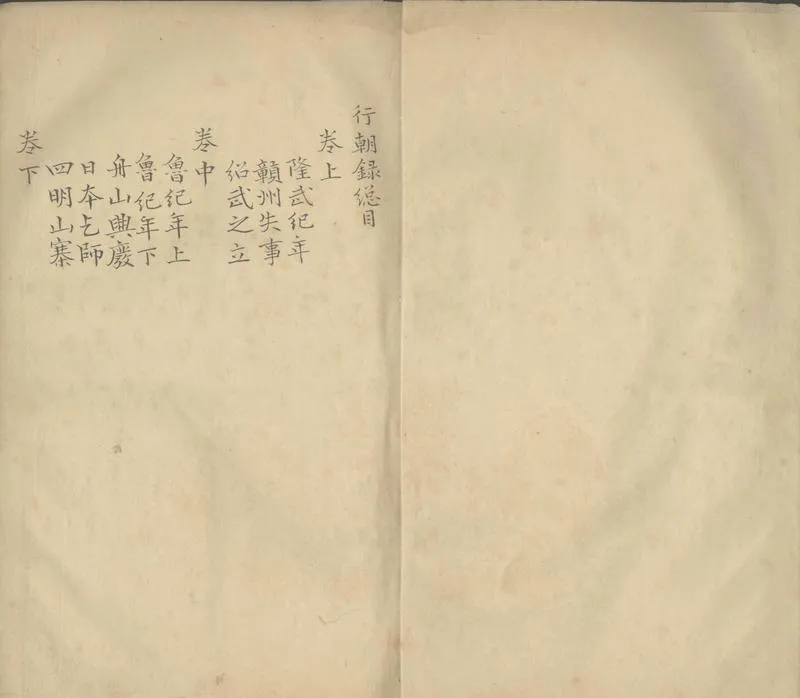 行朝録緫目
卷上
隆武紀年
贛州失事
紹武之立
卷中
魯紀年上
魯紀年下
舟山興廢
日本乞師
四明山寨
卷下